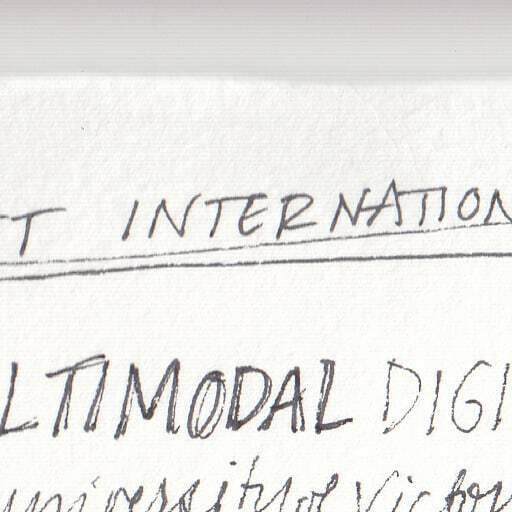 T INTERNATION
LTIMODAL DIGI
university of Victor